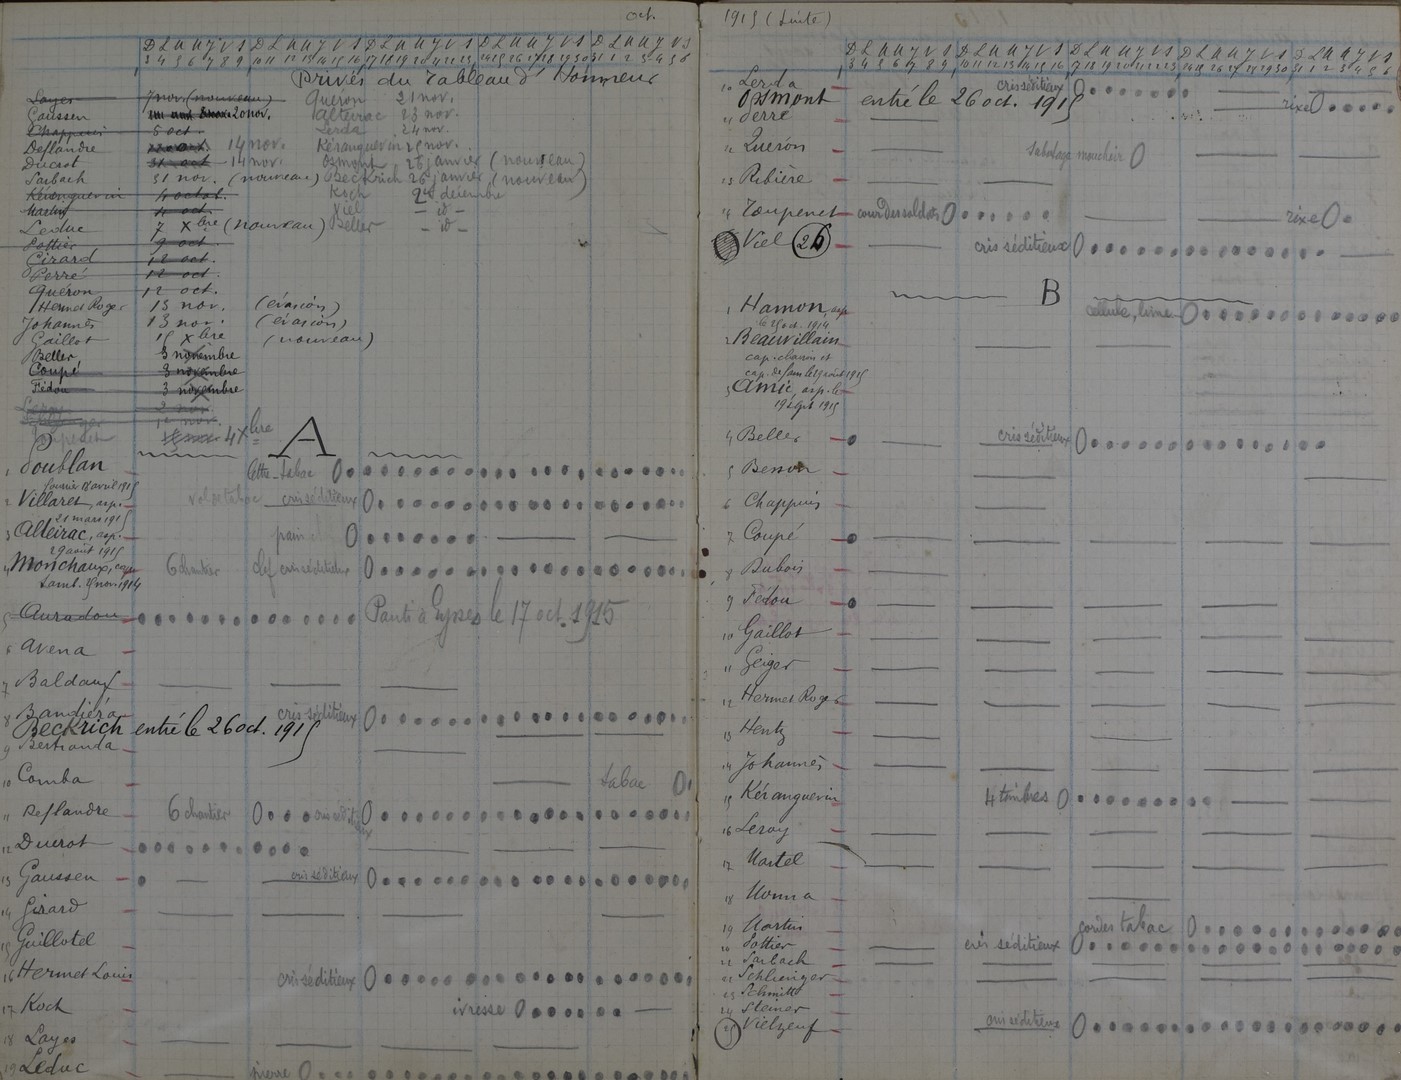 oct.
D L M M J V S D L M M J V S D L M M J V S D L M M J V S D L M M J V S
3 4 5 6 7 8 9 10 11 12 13 14 15 16 17 18 19 20 21 22 23 24 25 26 27 28 29 30 31 1 2 3 4 5 6
Privés du Tableau d'Honneur
Layes 7 nov. (nouveau) Quéron 21 nov.
Gaussen 20 nov. Alteirac 23 nov.
Chappuis 5 oct. Lerda 24 nov.
Deflandre 14 nov. Kéranguerin 25 nov.
Ducrot 31 oct 14 nov. Osmont 26 janvier (nouveau)
Sarbach 31 nov. (nouveau) Beckrich 26 janvier (nouveau)
Kéranguerin 4 octob. Koch décembre
Martin 4 oct. Viel - id -
Leduc 7 Xbre (nouveau) Beller - id -
Pottier 9 oct.
Girard 12 oct.
Perré 12 oct.
Quéron 12 oct.
Hermet Roger 13 nov. (évasion)
Johannès 13 nov. (évasion)
Gaillot 15 Xbre (nouveau)
Beller, 3 novembre
Coupé 3 novembre
Fédou 3 novembre
Leroy 2 nov.
nov.
Toupenet 4 Xbre
A
1 Poublan lettre-tabac
2 Villaret, asp. cris séditieux
21 mars 1915
3 Alteirac, asp. pain
29 août 1915
4 Monchaux, cap. 6 chantier cris séditieux
Lamb. nov. 1914
5 Auradou Parti à Eysses le 17 oct. 1915
6 Avena
7 Baldauf
8 Bandiéra cris séditieux
Beckrich entré le 26 oct. 1915
9 Bertranda
10 Comba tabac
11 Deflandre 6 chantier cris séditieux
12 Ducrot
13 Gaussen cris séditieux
14 Girard
15 Guillotel
16 Hermet Louis cris séditieux
17 Koch ivresse
18 Layes
19 Leduc pierre
1915 (suite)
D L M M J V S D L M M J V S D L M M J V S D L M M J V S D L M M J V S
3 4 5 6 7 8 9 10 11 12 13 14 15 16 17 18 19 20 21 22 23 24 25 26 27 28 29 30 31 1 2 3 4 5 6
10 Lerda cris séditieux
Osmont entré le 26 oct. 1915 rixe
11 Perré
12 Quéron mouchoir
13 Ribière
14 Toupenet cour des soldats rixe
Viel 26 cris séditieux
B
1 Hamon, asp. cellule, lime
le 25 oct. 1914
2 Beauvillain
3 Amic, asp. le
19 sept 1915
4 Beller cris séditieux
5 Besson
6 Chappuis
7 Coupé
8 Dubois
9 Fédou
10 Gaillot
11 Geiger
12 Hermet Roger
13 Hentz
14 Johannès
15 Kéranguerin 4 timbres
16 Leroy
17 Martel
18 Monna
19 Martin tabac
20 Pottier cris séditieux
21 Sarbach
22 Schlienger
23 Schmitt
24 Steiner
25 Vielzeuf cris séditieux